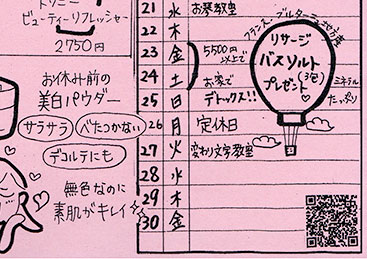 ドクソニー
ビューティーリフレッシャー
2750円
お休み前の
美白パウダー
サラサラ
べたつかない
デコルテにも
無色なのに
素肌がキレイ
21 水 お琴教室
22 木
23 金 5500円
以上で
24 土 お家で
25 日 デトックス!!
26 月 定休日
27 火 変わり文字教室
28 水
29 木
30 金
フランス・ブルターニュ地方産
リサージ
バスソルト
(3包)
プレゼント
ミネラル
たっぷり